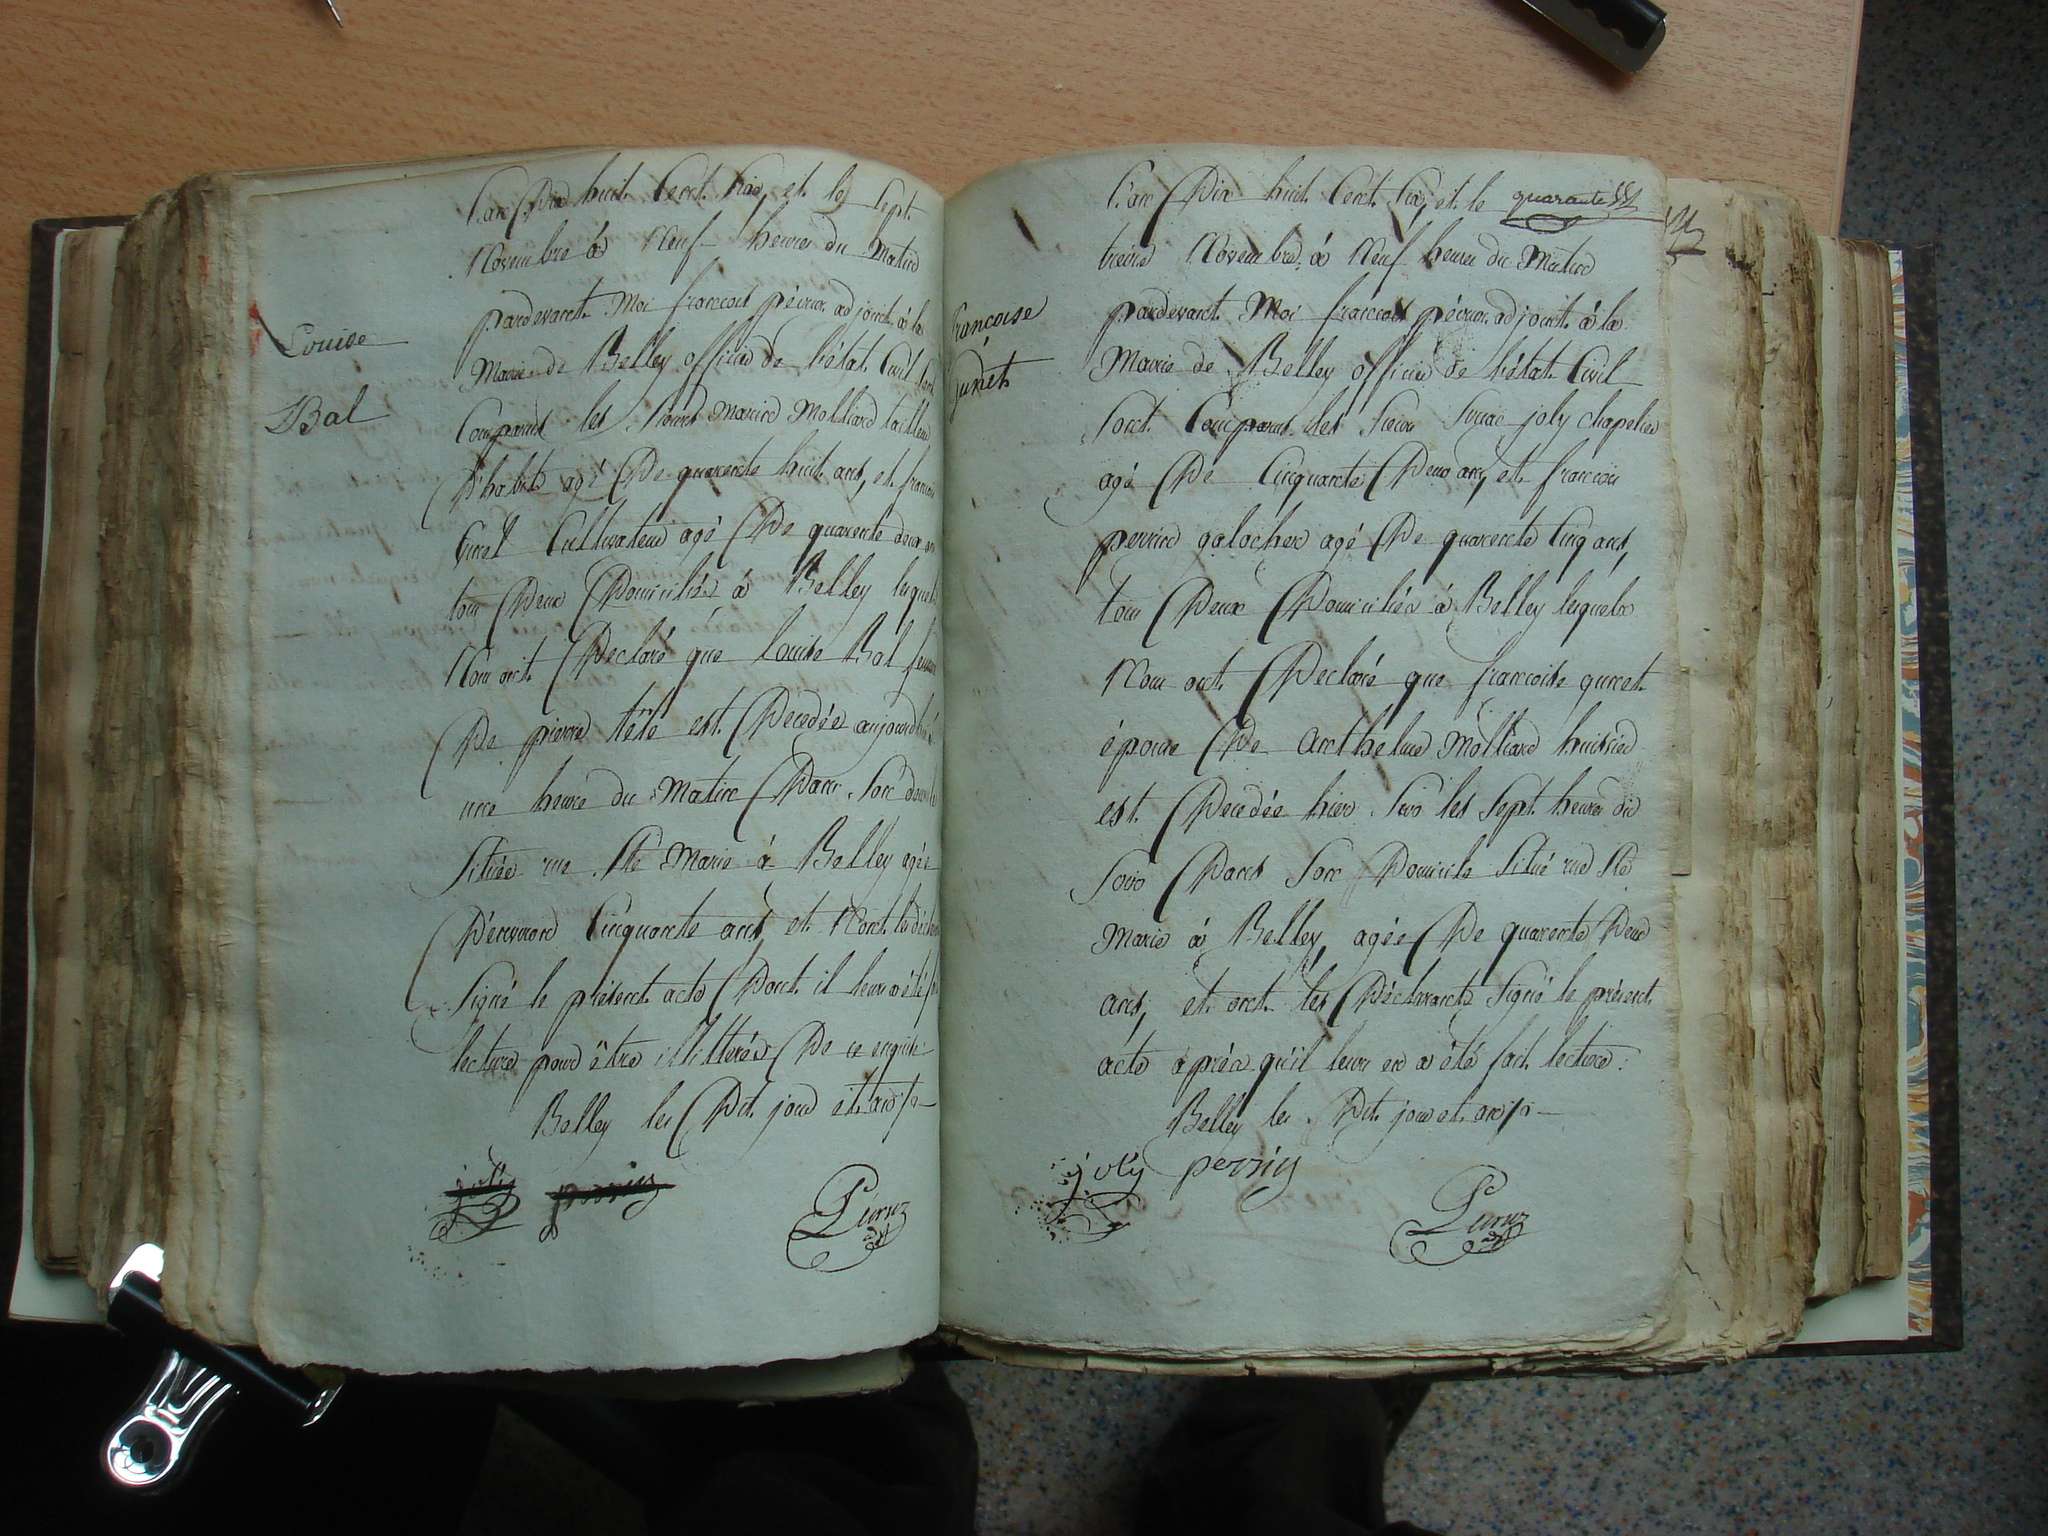 Louise
Bal
L'an Dix huit Cent Six, et le Sept
Novembre à Neuf heures du Matin
pardevant Moi françois péruz adjoint à la
Mairie de Belley officier de l'état Civil sont
Comparus les Sieurs Marin Molliard tailleur
D'habits agé De quarente huit ans, et françois
Cultivateur agé De quarente deux ans
tous Deux Domiciliés à Belley lesquels
Nous ont Declaré que Louise Bal femme
De pierre tête est Decedée aujourd'hui à
une heure du Matin Dans Son domicile
Située rue Ste Marie à Belley agée
D'environ Cinquante ans, et N'ont les déclarants
Signé le présent acte Dont il leur a été fait
lecture pour être illitterés De ce enquis
Belley les Dit jour et an
joly perrin
Péruz
quarante
françoise
gunet
L'an Dix huit Cent Six, et le
treize Novembre, à Neuf heures du Matin
pardevant Moi françois péruz adjoint à la
Mairie de Belley officier de l'état Civil
Sont Comparus les Sieurs joly chapelier
agé De Cinquante Deux ans, et françois
perrin galocher agé De quarente Cinq ans,
tous Deux Domiciliés à Belley lesquels
Nous ont Declaré que françoise gunet
épouse De Anthelme Molliard huissier
est Decedée hier Sur les Sept heures du
Soir Dans Son Domicile Situé rue Ste
Marie à Belley, agée De quarente Deux
ans, et ont les Déclarants Signé le présent
acte après qu'il leur en a été fait lecture.
Belley les Dit jour et an
joly perrin
Péruz